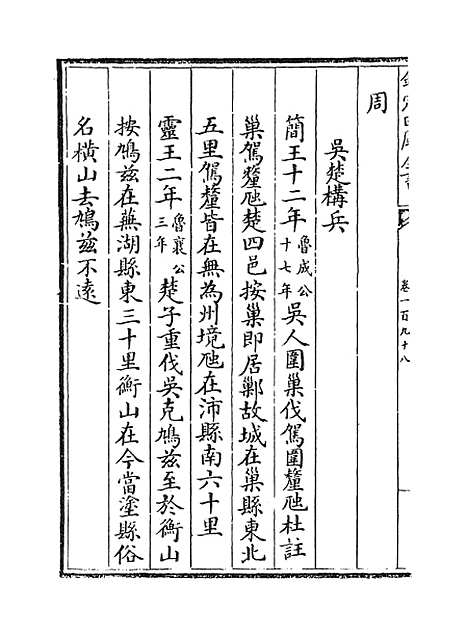 周
吳楚構兵
簡王十二年魯成公十七年吳人圍巢伐駕圍釐虺杜註
巢駕釐虺楚四邑按巢即居鄛故城在巢縣東北
五里駕釐皆在無為州境虺在沛縣南六十里
靈王二年魯襄公三年楚子重伐吳克鳩茲至於衡山
按鳩茲在蕪湖縣東三十里衡山在今當塗縣俗
名橫山去鳩茲不遠
卷一百九十八